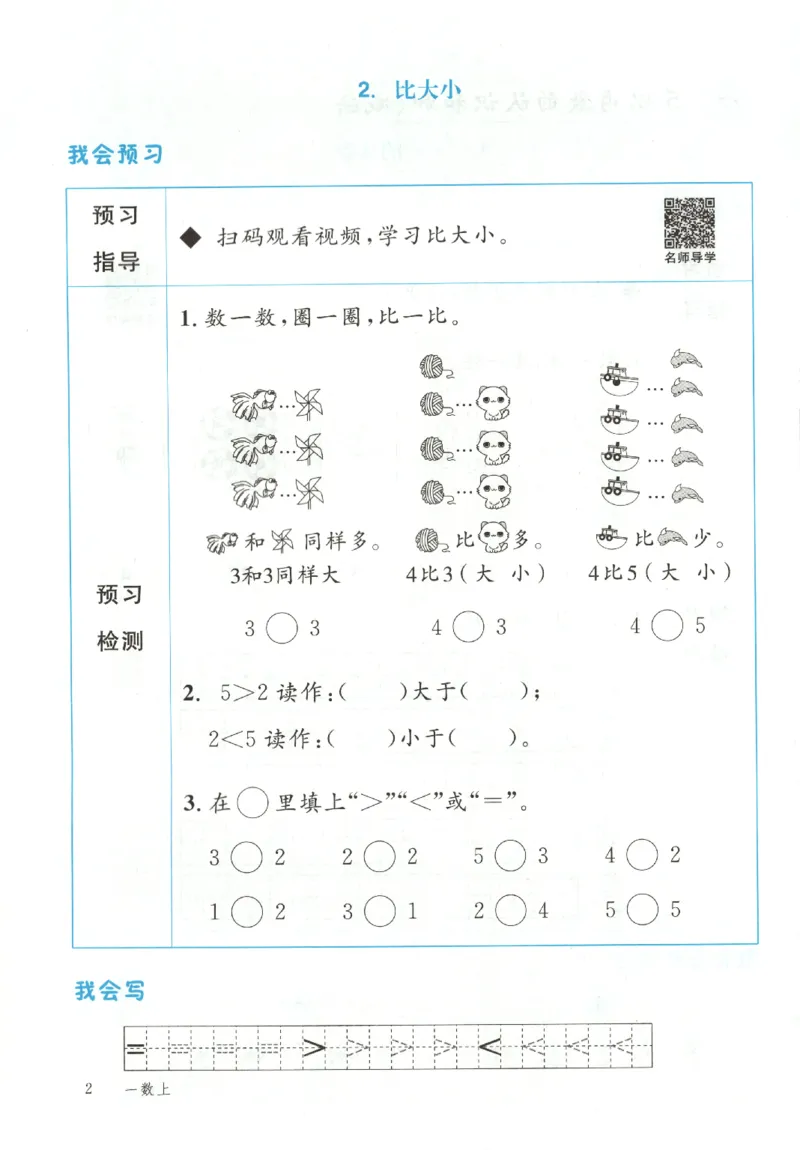 2. 比大小
我会预习
预习
指导
◆ 扫码观看视频,学习比大小。
名师导学
预习
检测
1. 数一数,圈一圈,比一比。
和 同样多。 比 多。 比 少。
3和3同样大 4比3(大 小) 4比5(大 小)
3 ○ 3 4 ○ 3 4 ○ 5
2. 5>2 读作:( )大于( );
2<5 读作:( )小于( )。
3. 在○里填上“>”“<”或“=”。
3 ○ 2 2 ○ 2 5 ○ 3 4 ○ 2
1 ○ 2 3 ○ 1 2 ○ 4 5 ○ 5
我会写
= = = = > > > > < < < <
2 一数上